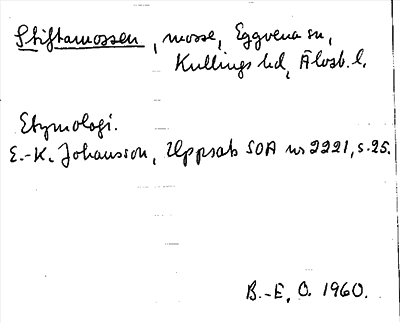 Stiftamossen, mosse, Eggvena sn,
Kullings hd, Älvsb. l.
Etymologi.
E.-K. Johansson, Uppsats SOA nr 2221, s. 25.
B.-E. O. 1960.